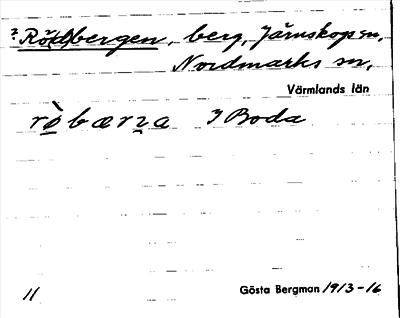 ? Rö(d)bergen, berg, Järnskogs sn,
Nordmarks sn,
Värmlands län
rø̀bærna Ӡ Boda
11 Gösta Bergman 1913-16